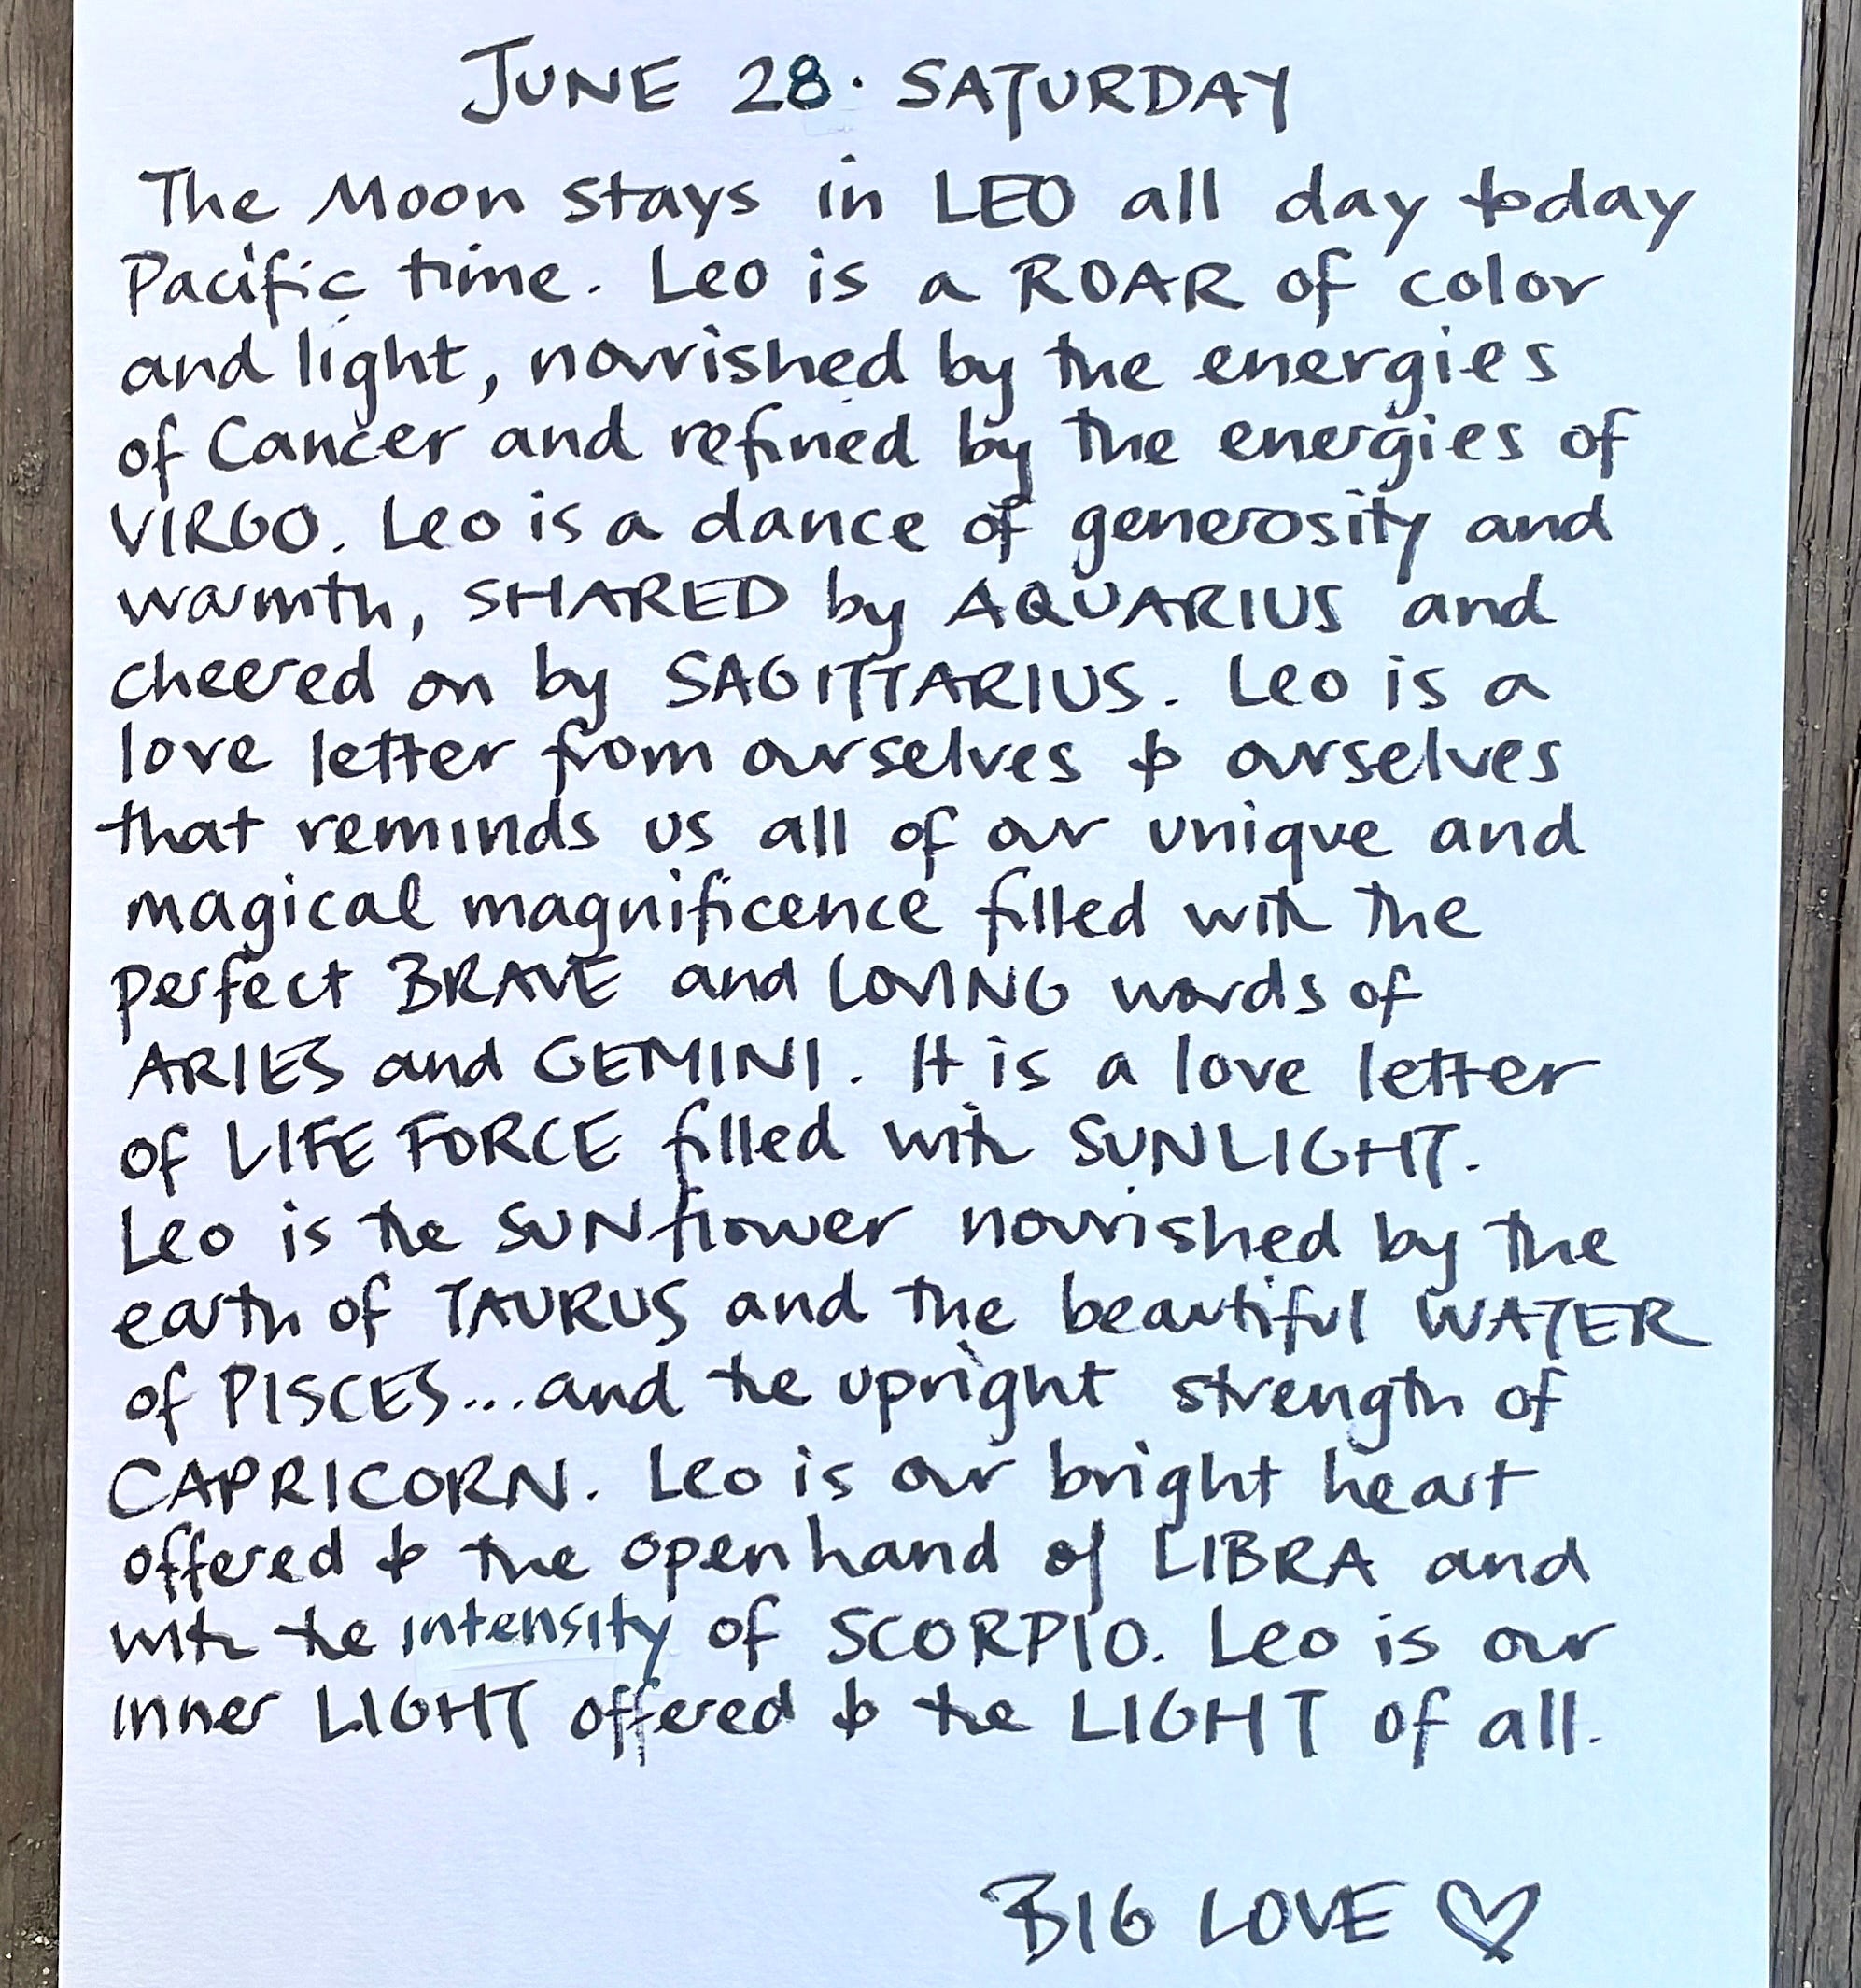 JUNE 28 · SATURDAY
The Moon stays in LEO all day today
Pacific time. Leo is a ROAR of color
and light, nourished by the energies
of Cancer and refined by the energies of
VIRGO. Leo is a dance of generosity and
warmth, SHARED by AQUARIUS and
cheered on by SAGITTARIUS. Leo is a
love letter from ourselves to ourselves
that reminds us all of our unique and
magical magnificence filled with the
perfect BRAVE and LOVING words of
ARIES and GEMINI. It is a love letter
of LIFE FORCE filled with SUNLIGHT.
Leo is the SUNflower nourished by the
earth of TAURUS and the beautiful WATER
of PISCES...and the upright strength of
CAPRICORN. Leo is our bright heart
offered to the open hand of LIBRA and
with the intensity of SCORPIO. Leo is our
inner LIGHT offered to the LIGHT of all.
BIG LOVE ♡